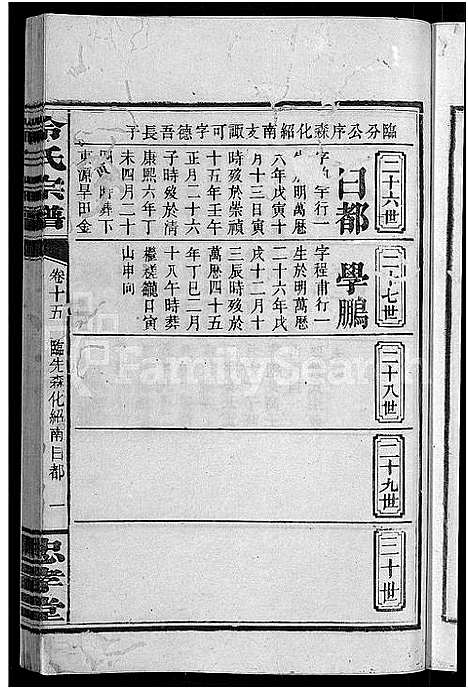 臨分公序森化紹南支諏可字德吾長子
二十六世
曰都
年行一
生於明萬曆
六年戊寅十
月十三日寅
時歿於崇禎
十五年壬午
正月二十六
子時歿於清
康熙六年丁
未四月二十
葬下
東源旱田金
二十七世
學鵬
字程甫行一
生於明萬曆
二十六年戊
戌十二月十
三辰時歿於
萬曆四十五
年丁巳二月
十八午時葬
櫃槎鑨日寅
山申向
二十八世
二十九世
三十世
冷氏宗譜
卷十五
臨先森化紹南曰都
一
忠孝堂
FamilySearch